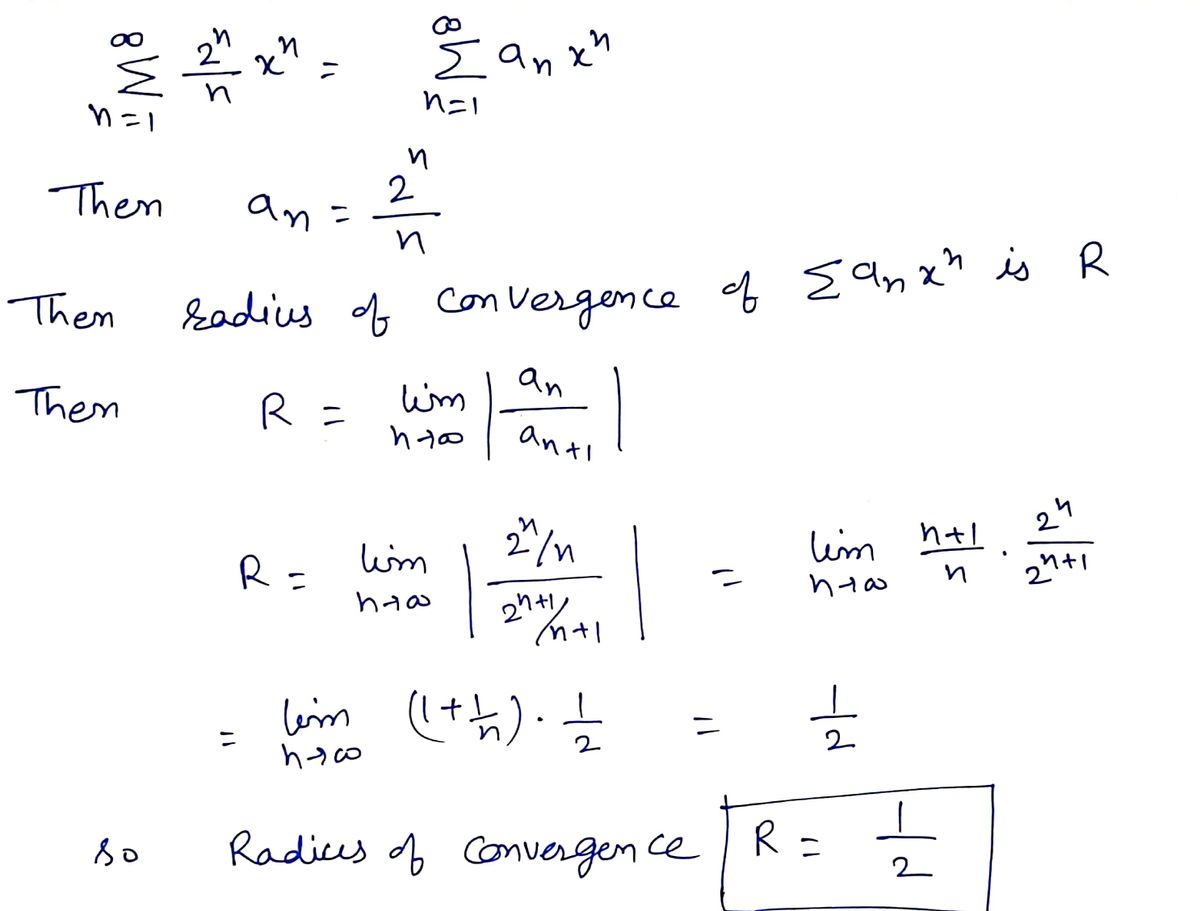 ∞ Σ n=1 2ⁿ/n xⁿ = ∞ Σ n=1 aₙ xⁿ
Then aₙ = 2ⁿ/n
Then radius of convergence of Σ aₙ xⁿ is R
Then R = lim n→∞ | aₙ / aₙ₊₁ |
R = lim n→∞ | 2ⁿ/n / 2ⁿ⁺¹/n+1 | = lim n→∞ n+1/n · 2ⁿ/2ⁿ⁺¹
= lim n→∞ (1 + 1/n) · 1/2 = 1/2
so Radius of convergence R = 1/2